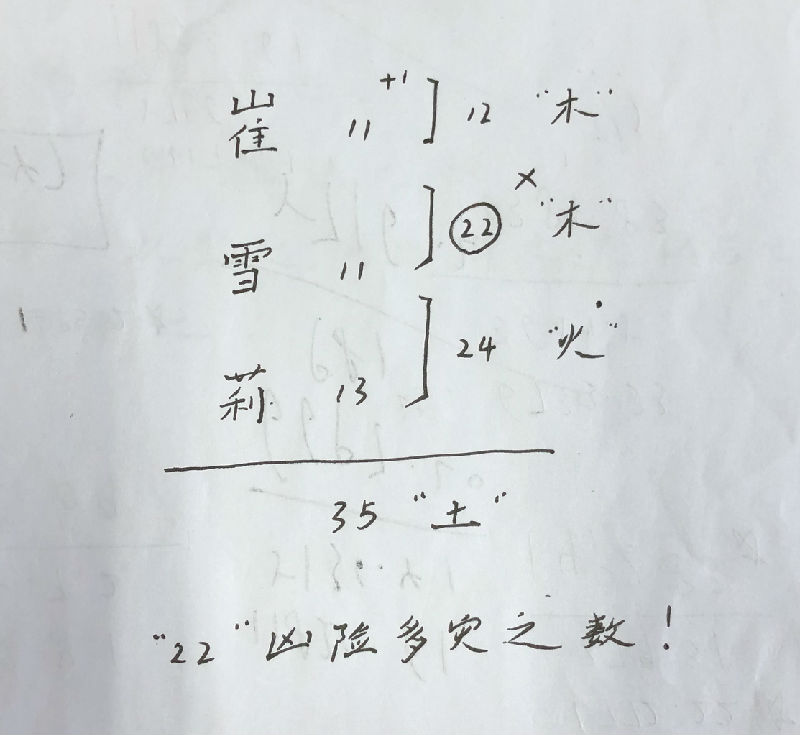 崔 11 +1 ] 12 "木"
雪 11 ] 22 × "木"
莉 13 ] 24 "火"
35 "土"
"22"凶险多灾之数!